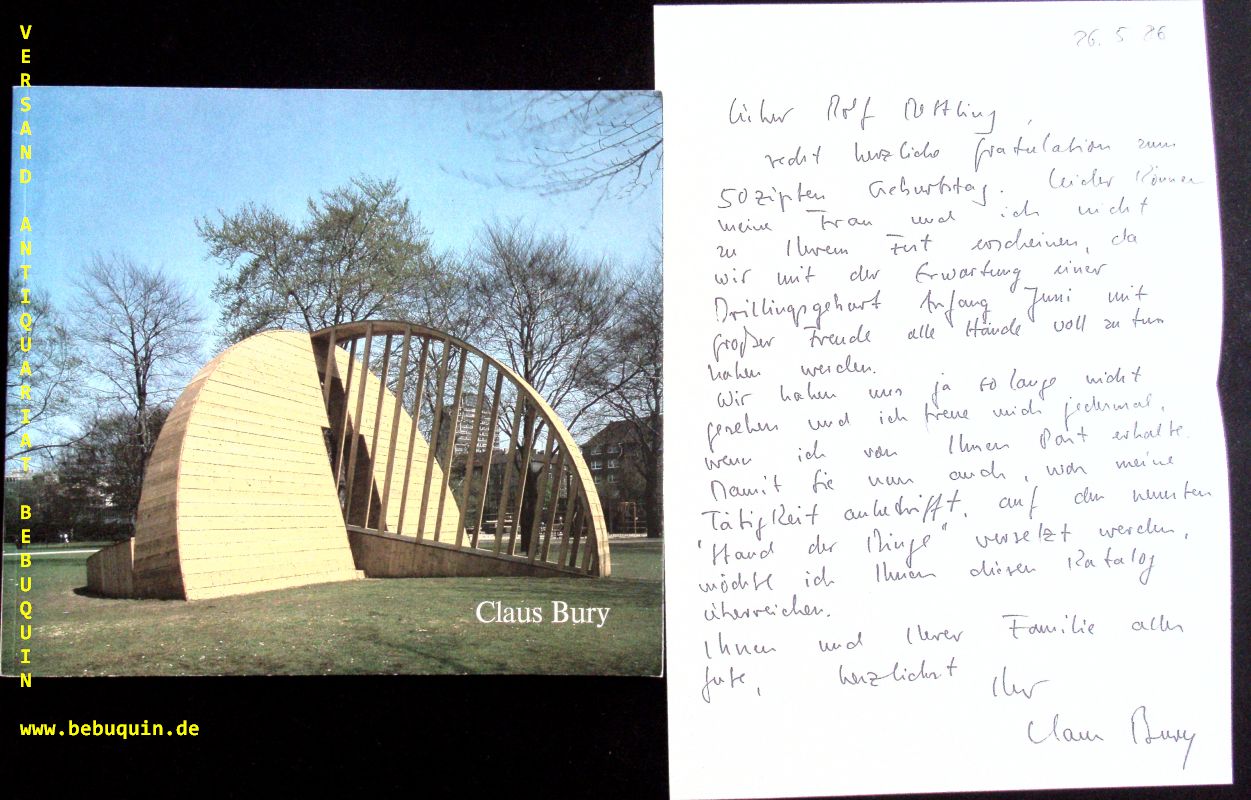 VERSAND ANTIQUARIAT BEBUQUIN
www.bebuquin.de
Claus Bury
26. 5 86
Lieber Rolf
recht herzliche Gratulation zum
50zigsten Geburtstag. Leider können
meine Frau und ich nicht
zu Ihrem Fest erscheinen, da
wir mit der Erwartung einer
Drillingsgeburt Anfang Juni mit
großer Freude alle Hände voll zu tun
haben werden.
Wir haben uns ja so lange nicht
gesehen und ich freue mich jedesmal,
wenn ich von Ihnen Post erhalte.
Damit Sie nun auch, was meine
Tätigkeit anbetrifft, auf den neuesten
"Stand der Dinge" versetzt werden,
möchte ich Ihnen diesen Katalog
überreichen.
Ihnen und Ihrer Familie alles
gute, herzlichst
Ihr
Claus Bury